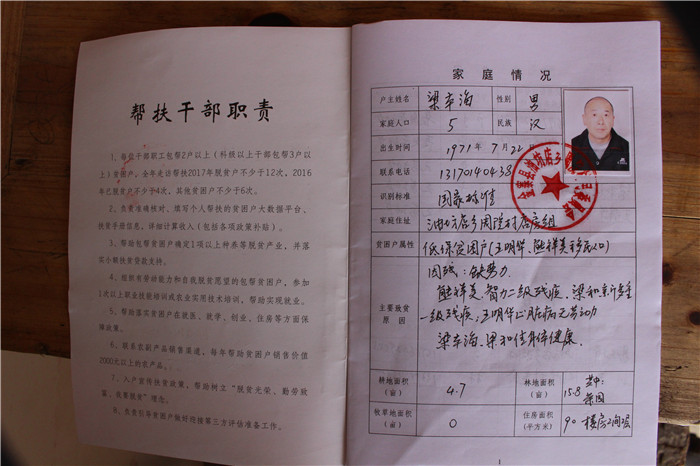 帮扶干部职责
1、每位干部职工包帮2户以上(科级以上干部包帮3户以
上)贫困户。全年走访帮扶2017年脱贫户不少于12次,2016
年已脱贫户不少于4次,其他贫困户不少于6次。
2、负责准确核对、填写个人帮扶的贫困户大数据平台、
扶贫手册信息,详细计算收入(包括各项政策补贴)。
3、帮助包帮贫困户确定1项以上种养等脱贫产业,并落
实小额扶贫贷款支持。
4、组织有劳动能力和自我脱贫愿望的包帮贫困户,参加
1次以上职业技能培训或农业实用技术培训,帮助实现就业。
5、帮助落实贫困户在就医、就学、创业、住房等方面保
障政策。
6、联系农副产品销售渠道,每年帮助贫困户销售价值
2000元以上的农产品。
7、入户宣传扶贫政策,帮助树立“脱贫光荣、勤劳致
富、我要脱贫”理念。
8、负责引导贫困户做好迎接第三方评估准备工作。
家庭情况
户主姓名 梁本海 性别 男
家庭人口 5 民族 汉
出生时间 1971年7月22
联系电话 13170140438
识别标准 国家标准
家庭住址 油坊店乡周院村店房组
贫困户属性 低保贫困户(王明华、熊祥美移民人口)
主要致贫
原因
因残:缺劳力
熊祥美、智力二级残疾、梁和
一级残疾、王明华心脏病无劳动
梁本海、梁和佳身体健康.
耕地面积
(亩)
4.7
林地面积
(亩)
15.8
其中:
牧草地面积
(亩)
0
住房面积
(平方米)
90 楼房2间2层
1